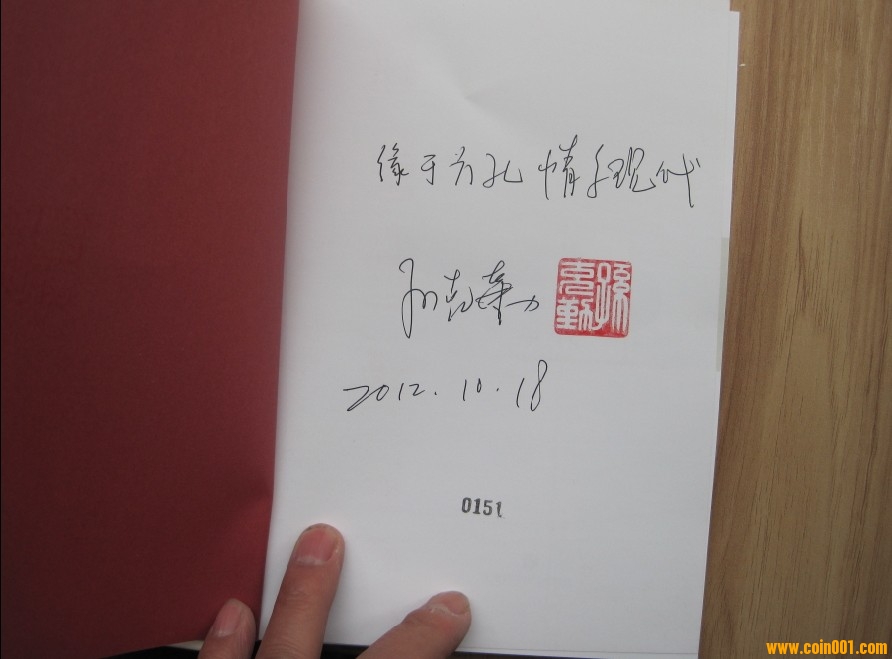 缘于方孔 情系现代
孙克勤
孫克勤
2012.10.18
0151
www.coin001.com